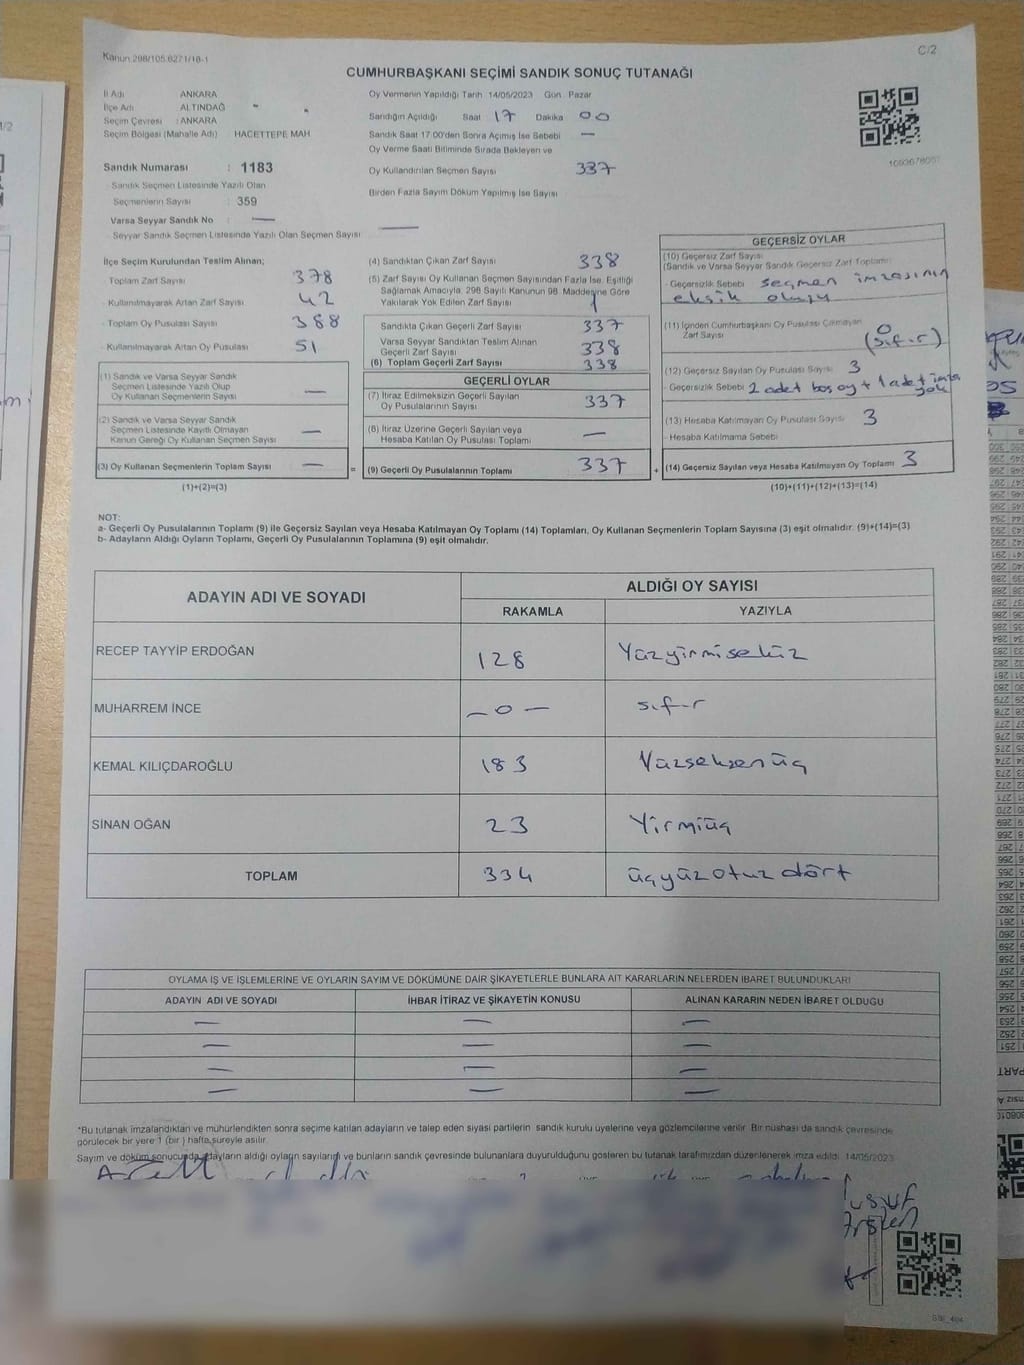 Kanun 298/105.6271/18-1
C/2
CUMHURBAŞKANI SEÇİMİ SANDIK SONUÇ TUTANAĞI
İl Adı ANKARA
İlçe Adı ALTINDAĞ
Seçim Çevresi : ANKARA
Seçim Bölgesi (Mahalle Adı) HACETTEPE MAH
Sandık Numarası : 1183
Sandık Seçmen Listesinde Yazılı Olan
Seçmenlerin Sayısı : 359
Varsa Seyyar Sandık No : —
Seyyar Sandık Seçmen Listesinde Yazılı Olan Seçmen Sayısı —
Oy Vermenin Yapıldığı Tarih 14/05/2023 Gün Pazar
Sandığın Açıldığı Saat 17 Dakika 00
Sandık Saat 17:00'den Sonra Açımış İse Sebebi —
Oy Verme Saati Bitiminde Sırada Bekleyen ve
Oy Kullandırılan Seçmen Sayısı 337
Birden Fazla Sayım Döküm Yapılmış İse Sayısı
İlçe Seçim Kurulundan Teslim Alınan;
Toplam Zarf Sayısı 378
Kullanılmayarak Artan Zarf Sayısı 42
Toplam Oy Pusulası Sayısı 388
Kullanılmayarak Artan Oy Pusulası 51
(1) Sandık ve Varsa Seyyar Sandık
Seçmen Listesinde Yazılı Olup
Oy Kullanan Seçmenlerin Sayısı —
(2) Sandık ve Varsa Seyyar Sandık
Seçmen Listesinde Kayıtlı Olmayan
Kanun Gereği Oy Kullanan Seçmen Sayısı —
(3) Oy Kullanan Seçmenlerin Toplam Sayısı — =
(1)+(2)=(3)
(4) Sandıktan Çıkan Zarf Sayısı 338
(5) Zarf Sayısı Oy Kullanan Seçmen Sayısından Fazla İse, Eşitliği
Sağlamak Amacıyla, 298 Sayılı Kanunun 98. Maddesine Göre
Yakılarak Yok Edilen Zarf Sayısı 1
Sandıkta Çıkan Geçerli Zarf Sayısı 337
Varsa Seyyar Sandıktan Teslim Alınan
Geçerli Zarf Sayısı 338
(6) Toplam Geçerli Zarf Sayısı 338
GEÇERLİ OYLAR
(7) İtiraz Edilmeksizin Geçerli Sayılan
Oy Pusulalarının Sayısı 337
(8) İtiraz Üzerine Geçerli Sayılan veya
Hesaba Katılan Oy Pusulası Toplamı —
(9) Geçerli Oy Pusulalarının Toplamı 337 +
GEÇERSİZ OYLAR
(10) Geçersiz Zarf Sayısı
(Sandık ve Varsa Seyyar Sandık Geçersiz Zarf Toplamı)
- Geçersizlik Sebebi seçmen imzasının
eksik oluşu
(11) İçinden Cumhurbaşkanı Oy Pusulası Çıkmayan
Zarf Sayısı 0 (sıfır)
(12) Geçersiz Sayılan Oy Pusulası Sayısı 3
- Geçersizlik Sebebi 2 adet boş oy + 1 adet imza
yok
(13) Hesaba Katılmayan Oy Pusulası Sayısı 3
- Hesaba Katılmama Sebebi
(14) Geçersiz Sayılan veya Hesaba Katılmayan Oy Toplamı 3
(10)+(11)+(12)+(13)=(14)
NOT:
a- Geçerli Oy Pusulalarının Toplamı (9) ile Geçersiz Sayılan veya Hesaba Katılmayan Oy Toplamı (14) Toplamları, Oy Kullanan Seçmenlerin Toplam Sayısına (3) eşit olmalıdır. (9)+(14)=(3)
b- Adayların Aldığı Oyların Toplamı, Geçerli Oy Pusulalarının Toplamına (9) eşit olmalıdır.
ADAYIN ADI VE SOYADI ALDIĞI OY SAYISI
RAKAMLA YAZIYLA
RECEP TAYYİP ERDOĞAN 128 Yüzyirmisekiz
MUHARREM İNCE — 0 — sıfır
KEMAL KILIÇDAROĞLU 183 Yüzseksenüç
SİNAN OĞAN 23 Yirmiüç
TOPLAM 334 üçyüzotuz dört
OYLAMA İŞ VE İŞLEMLERİNE VE OYLARIN SAYIM VE DÖKÜMÜNE DAİR ŞİKAYETLERLE BUNLARA AİT KARARLARIN NELERDEN İBARET BULUNDUKLARI
ADAYIN ADI VE SOYADI İHBAR İTİRAZ VE ŞİKAYETİN KONUSU ALINAN KARARIN NEDEN İBARET OLDUĞU
— — —
— — —
— — —
— — —
*Bu tutanak imzalandıktan ve mühürlendikten sonra seçime katılan adayların ve talep eden siyasi partilerin sandık kurulu üyelerine veya gözlemcilerine verilir. Bir nüshası da sandık çevresinde
görülecek bir yere 1 (bir ) hafta süreyle asılır.
Sayım ve döküm sonucunda adayların aldığı oyların sayılarını ve bunların sandık çevresinde bulunanlara duyurulduğunu gösteren bu tutanak tarafımızdan düzenlenerek imza edildi. 14/05/2023
Yusuf
Arslan